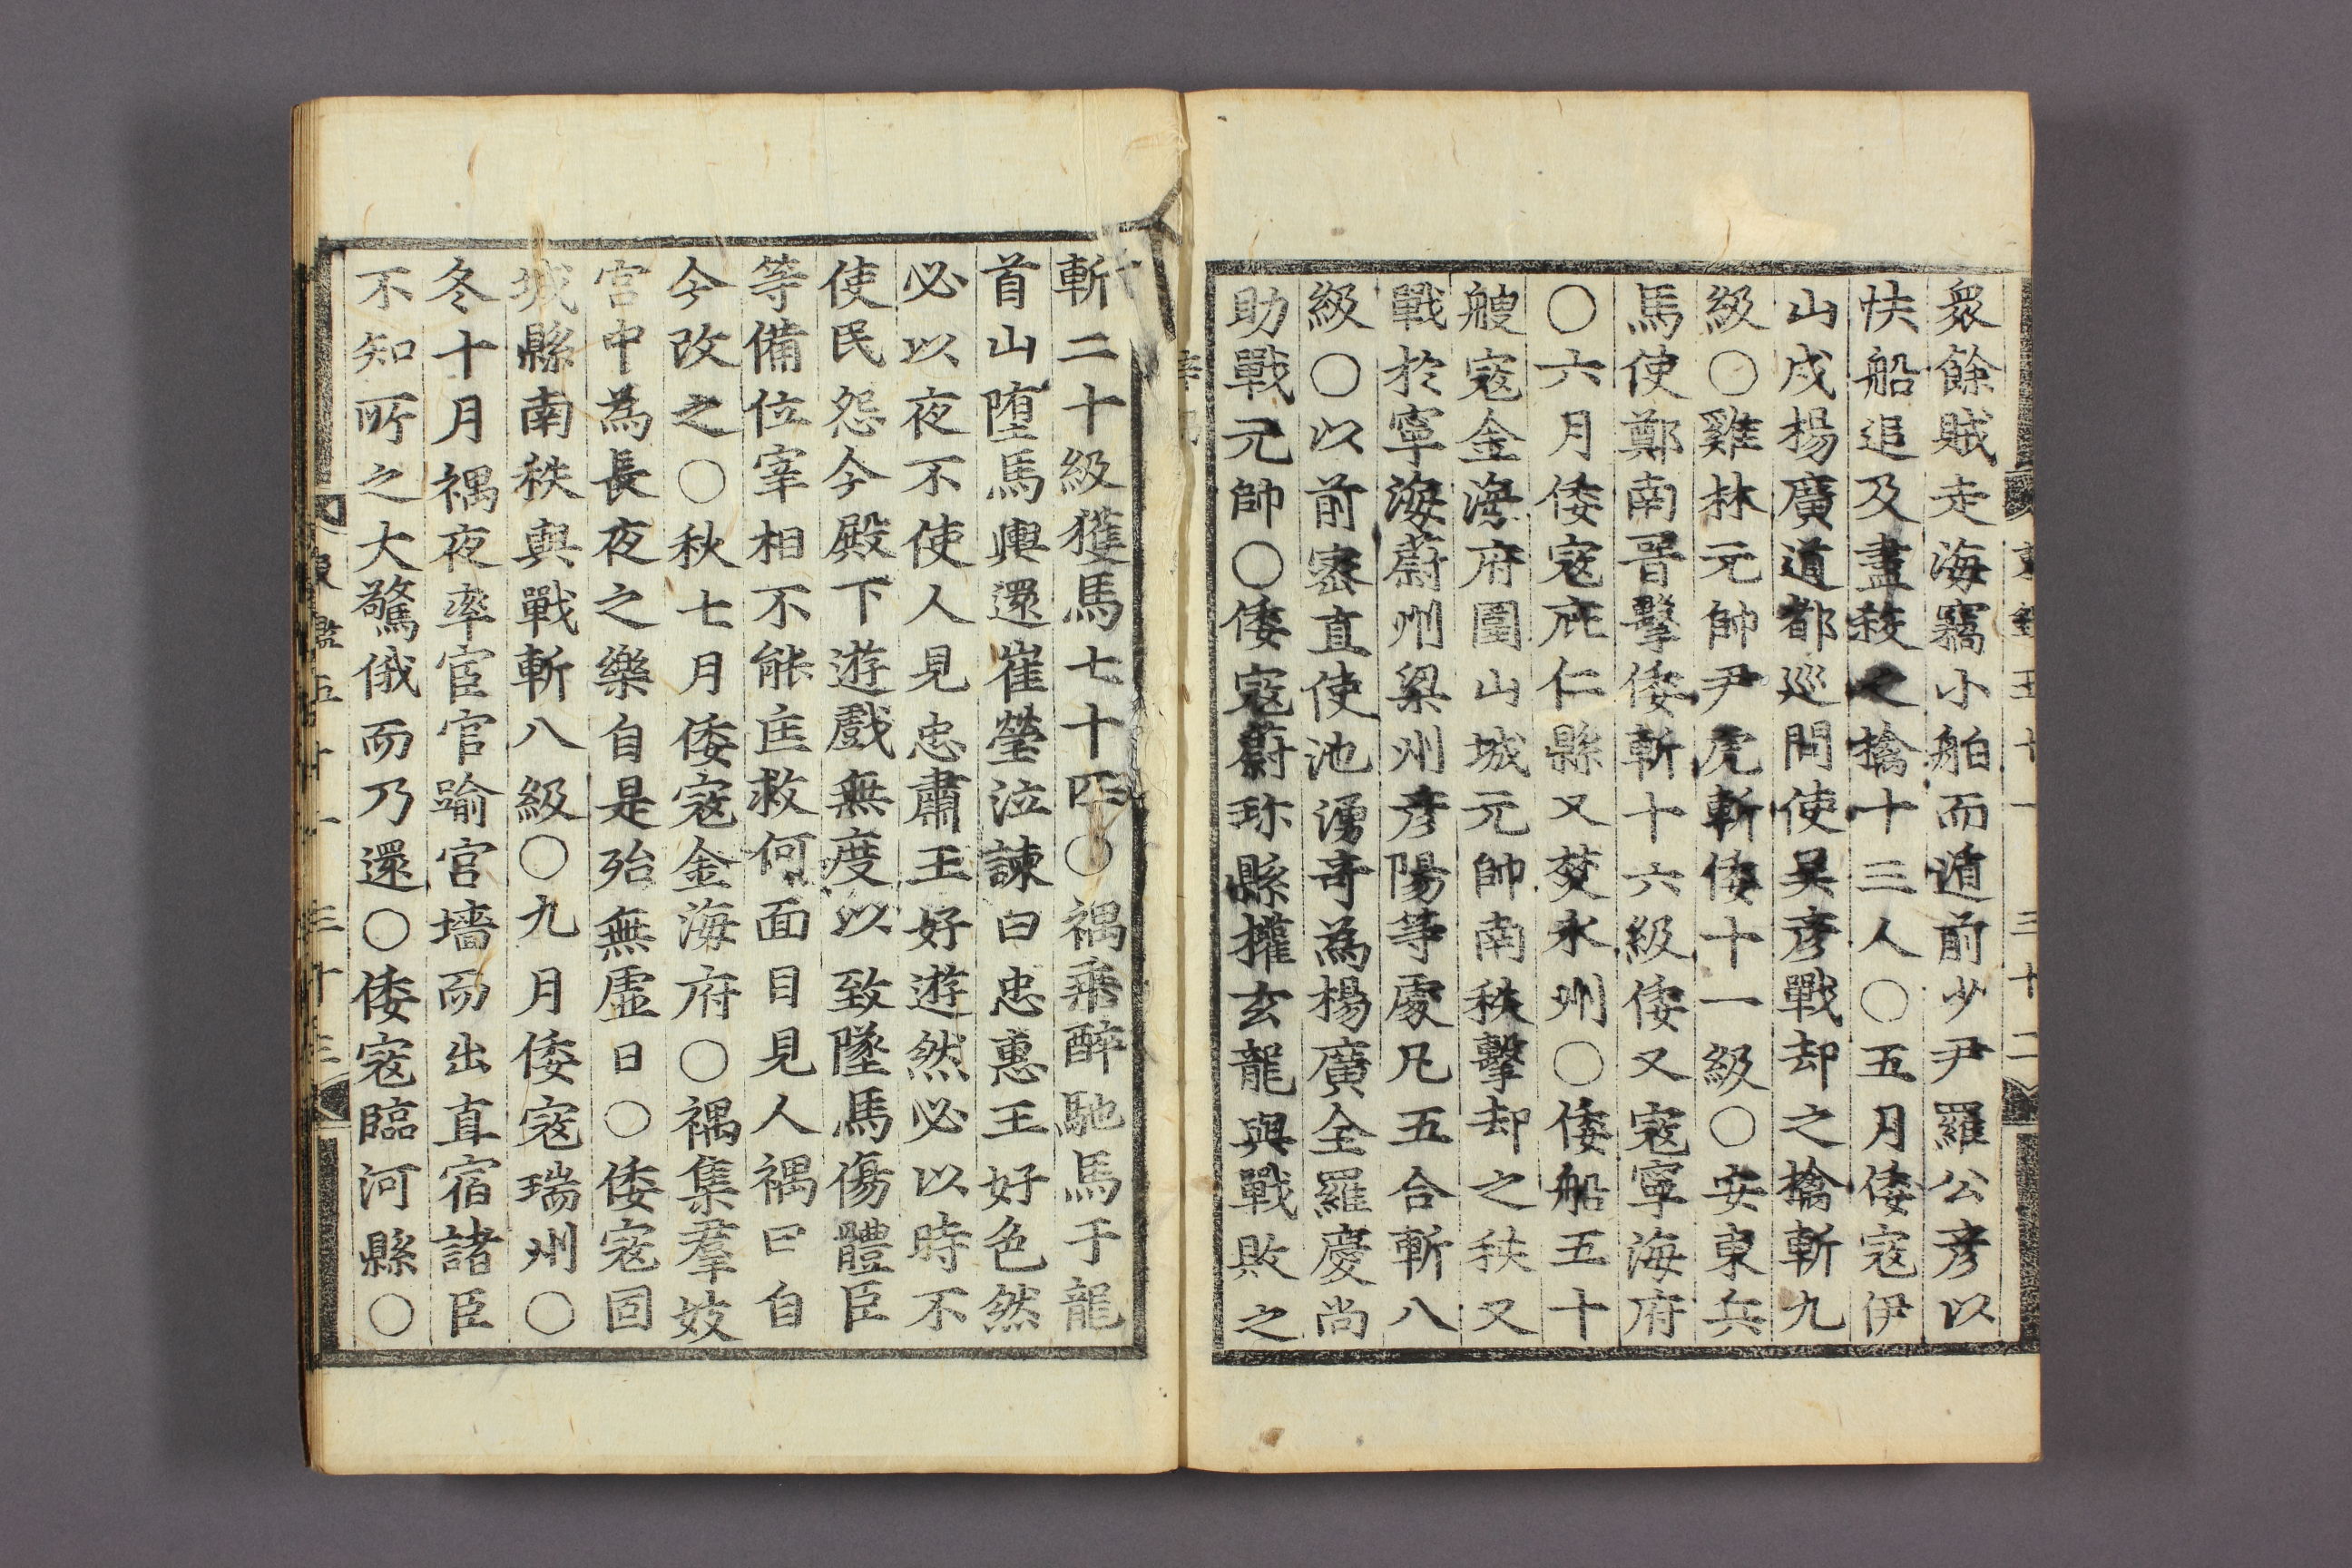 衆餘賊走海竊小舶而遁前少尹羅公彦以
快船追及盡殺之擒十三人○五月倭寇伊
山戍楊廣道都巡問使吴彦戰却之擒斬九
級○雞林元帥尹虎斬倭十一級○安東兵
馬使鄭南晋擊倭斬十六級倭又寇寧海府
○六月倭寇庇仁縣又焚永州○倭船五十
艘寇金海府圍山城元帥南秩擊却之秩又
戰於寧海蔚州梁州彦陽等處凡五合斬八
級○以前密直使池湧竒為楊廣全羅慶尚
助戰元帥○倭寇蔚珍縣權玄龍與戰敗之
斬二十級獲馬七十匹○禑乘醉馳馬于龍
首山墮馬輿還崔瑩泣諫曰忠惠王好色然
必以夜不使人見忠肅王好遊然必以時不
使民怨今殿下遊戲無度以致墜馬傷體臣
等備位宰相不能匡救何面目見人禑曰自
今改之○秋七月倭寇金海府○禑集羣妓
宮中為長夜之樂自是殆無虛日○倭寇固
城縣南秩與戰斬八級○九月倭寇瑞州○
冬十月禑夜率宦官踰宮墻而出直宿諸臣
不知所之大驚俄而乃還○倭寇臨河縣○
東鑑五十一 三十三